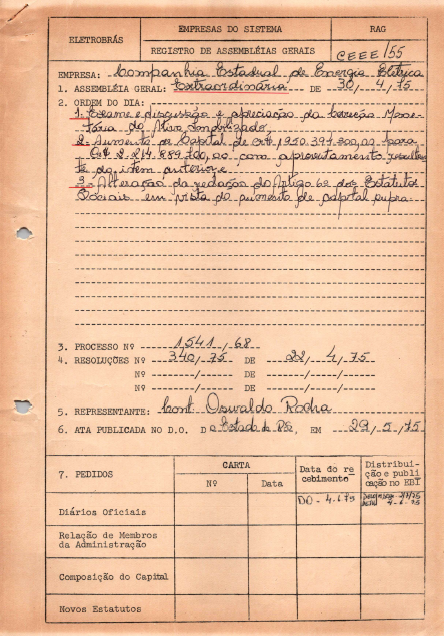 ELETROBRÁS
EMPRESAS DO SISTEMA
RAG
REGISTRO DE ASSEMBLÉIAS GERAIS
CEEE/55
EMPRESA: Companhia Estadual de Energia Elétrica
1. ASSEMBLÉIA GERAL: Extraordinária DE 30/4/75
2. ORDEM DO DIA:
1- Exame e discussão e apreciação da Correção Mone-
tária do Ativo Imobilizado.
2- Aumento de Capital de Cr$ 1.950.397.300,00 para
Cr$ 2.214.889.700,00 com aproveitamento
do item anterior.
3- Alteração da redação do Artigo 6º dos Estatutos
Sociais em vista do aumento de capital supra.
3. PROCESSO Nº 1541/68
4. RESOLUÇÕES Nº 340/75 DE 22/4/75
Nº / DE / /
Nº / DE / /
5. REPRESENTANTE: Cont. Oswaldo Rocha
6. ATA PUBLICADA NO D.O. Do Estado do RS, EM 29/5/75
7. PEDIDOS
CARTA
Nº
Data
Data do re
cebimento
Distribui-
ção e publi
cação no EBI
Diários Oficiais
DO - 4.6.75
4-6-75
Relação de Membros
da Administração
Composição do Capital
Novos Estatutos